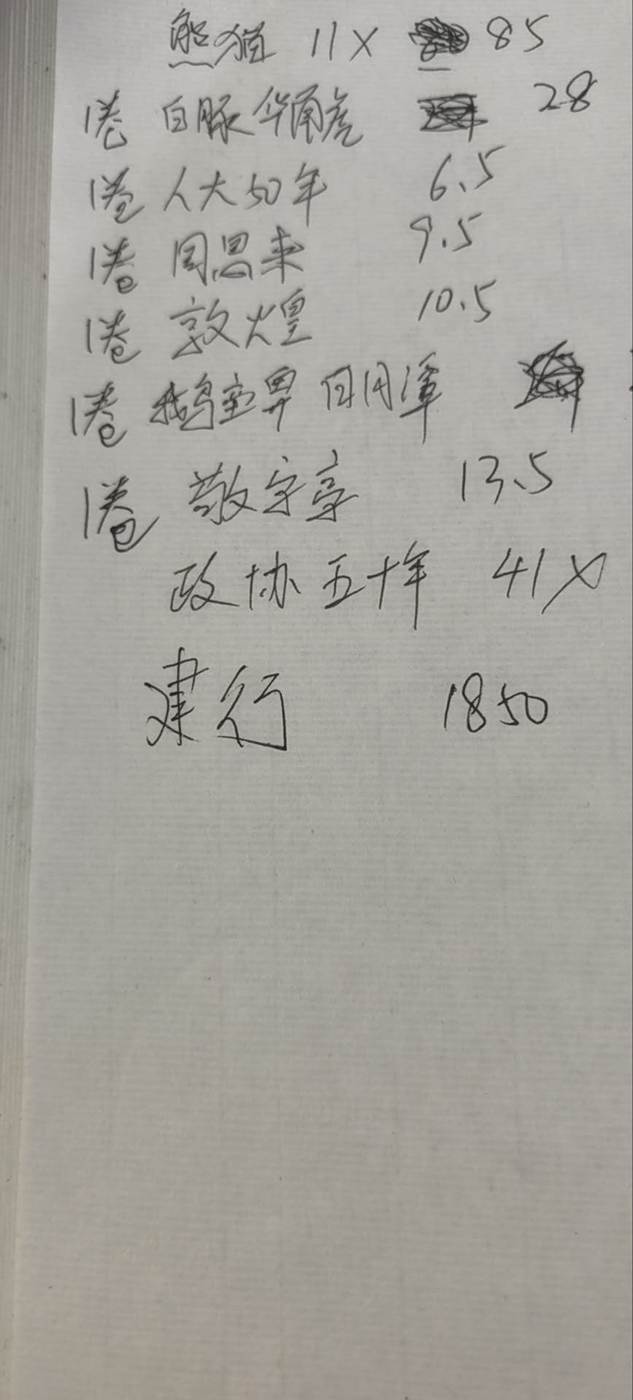 熊猫 11X 85
1卷 白豚华南虎 28
1卷 人大50年 6.5
1卷 周恩来 9.5
1卷 敦煌 10.5
1卷 鹅銮鼻 日月潭
1卷 敬字亭 13.5
政协五十年 41X
建行 1850